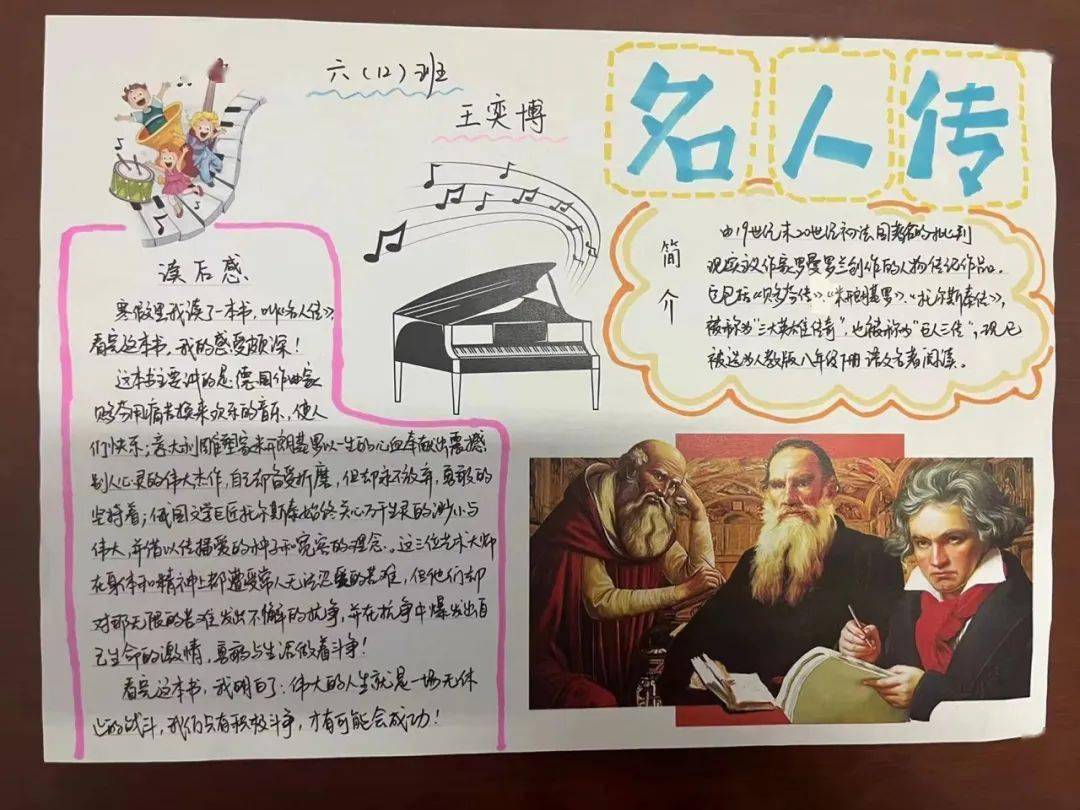 六(12)班
王奕博
名人传
简介
由19世纪末20世纪初法国著名的批判
现实主义作家罗曼罗兰创作的人物传记作品。
它包括《贝多芬传》、《米开朗基罗》、《托尔斯泰传》,
被称为"三大英雄传奇",也被称为"巨人三传",现已
被选为人教版八年级下册语文名著阅读。
读后感
寒假里我读了一本书,叫《名人传》,
看完这本书,我的感受颇深!
这本书主要讲的是:德国作曲家
贝多芬用痛苦换来欢乐的音乐,使人
们快乐;意大利雕塑家米开朗基罗以一生的心血奉献出震撼
别人心灵的伟大杰作,自己却备受折磨,但却永不放弃,勇敢的
坚持着;俄国文学巨匠托尔斯泰始终关心万千生灵的渺小与
伟大,并借以传播爱的种子和宽容的理念。这三位艺术大师
在身体和精神上都遭受常人无法忍受的苦难,但他们却
对那无限的苦难发出不懈的抗争,并在抗争中爆发出自
己生命的激情,勇敢与生活做着斗争!
看完这本书,我明白了:伟大的人生就是一场无休
止的战斗,我们只有积极斗争,才有可能会成功!